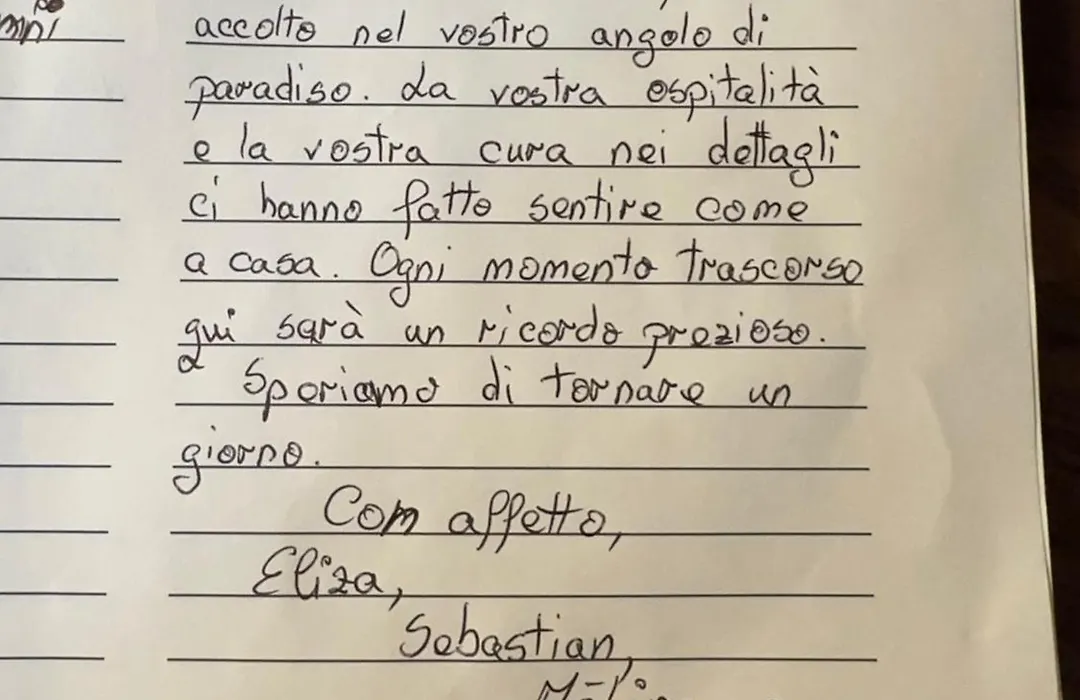 accolto nel vostro angolo di
paradiso. La vostra ospitalità
e la vostra cura nei dettagli
ci hanno fatto sentire come
a casa. Ogni momento trascorso
qui sarà un ricordo prezioso.
Speriamo di tornare un
giorno.
Com affetto,
Eliza,
Sebastian,